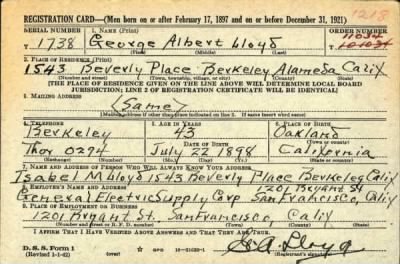 1218
REGISTRATION CARD—(Men born on or after February 17, 1897 and on or before December 31, 1921)
SERIAL NUMBER 1. NAME (Print) ORDER NUMBER
T 1738 George Albert Lloyd 11034
(First) (Middle) (Last) T 10103A
2. PLACE OF RESIDENCE (Print)
1543 Beverly Place Berkeley Alameda Calif
(Number and street) (Town, township, village, or city) (County) (State)
[THE PLACE OF RESIDENCE GIVEN ON THE LINE ABOVE WILL DETERMINE LOCAL BOARD
JURISDICTION; LINE 2 OF REGISTRATION CERTIFICATE WILL BE IDENTICAL]
3. MAILING ADDRESS
(Same)
[Mailing address if other than place indicated on line 2. If same insert word same]
4. TELEPHONE 5. AGE IN YEARS 6. PLACE OF BIRTH
Berkeley 43 Oakland
DATE OF BIRTH (Town or county)
Thor 0294 July 22 1898 California
(Exchange) (Number) (Mo.) (Day) (Yr.) (State or country)
7. NAME AND ADDRESS OF PERSON WHO WILL ALWAYS KNOW YOUR ADDRESS
Isabel M Lloyd 1543 Beverly Place Berkeley Calif
8. EMPLOYER'S NAME AND ADDRESS 1201 Bryant St
General Electric Supply Corp San Francisco, Calif
9. PLACE OF EMPLOYMENT OR BUSINESS
1201 Bryant St. San Francisco, Calif
(Number and street or R. F. D. number) (Town) (County) (State)
I AFFIRM THAT I HAVE VERIFIED ABOVE ANSWERS AND THAT THEY ARE TRUE.
D. S. S. Form 1
(Revised 1-1-42) (over) G A Lloyd
(Registrant's signature)